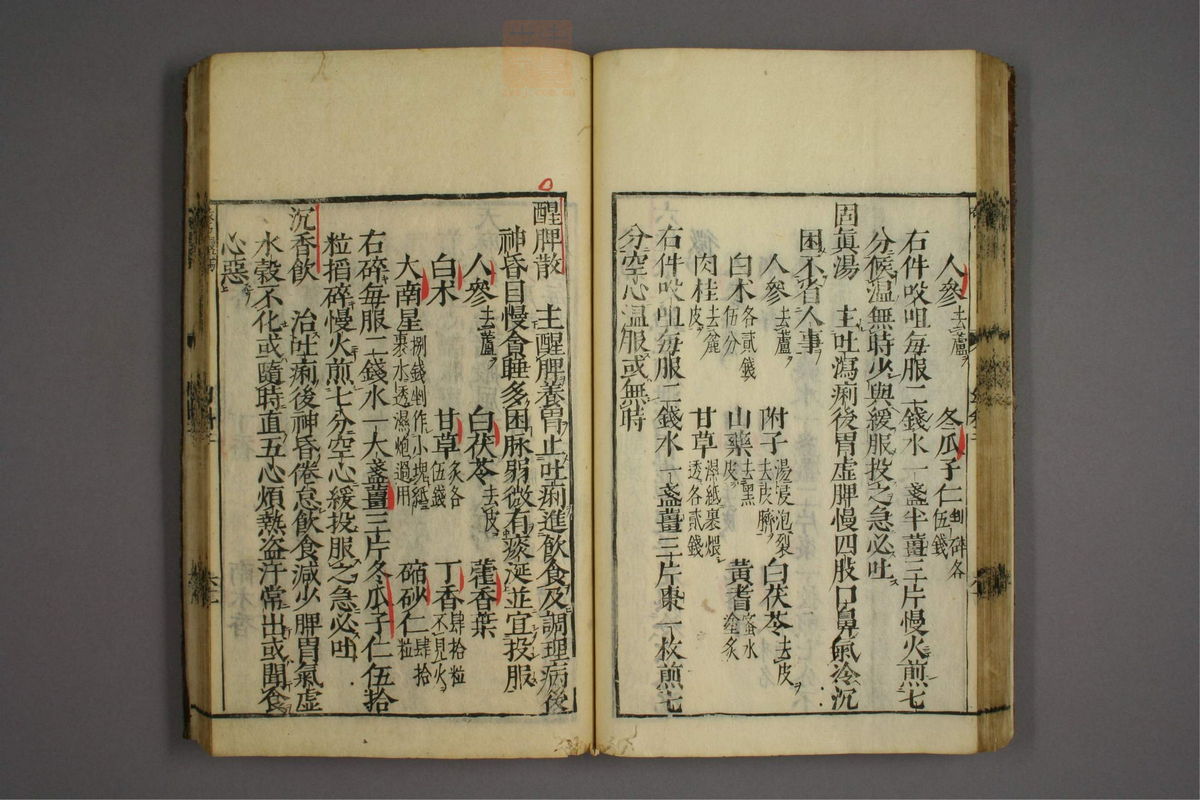 人參去蘆 冬瓜子仁剉碎各伍錢
右件㕮咀每服二錢水一盞半薑三片慢火煎七
分候温無時少與緩服投之急必吐
固眞湯 主吐瀉痢後胃虛脾慢四肢口鼻氣冷沉
困不省人事
人參去蘆 附子湯浸泡裂去皮臍 白茯苓去皮
白朮各貳錢伍分 山藥去黑皮 黃耆蜜水塗炙
肉桂去麄皮 甘草濕紙裹煨透各貳錢
右件㕮咀每服二錢水一盞薑三片棗一枚煎七
分空心温服或無時
醒脾散 主醒脾養胃止吐痢進飲食及調理病後
神昏目慢貪睡多困脉弱微有痰涎並宜投服
人參去蘆 白茯苓去皮 藿香葉
白朮 甘草炙各伍錢 丁香肆拾粒不見火
大南星捌錢剉作小塊紙裹水透濕炮過用 縮砂仁肆拾粒
右碎每服二錢水一大盞薑三片冬瓜子仁伍拾
粒搗碎慢火煎七分空心緩投服之急必吐
沉香飲 治吐痢後神昏倦怠飲食減少脾胃氣虛
水穀不化或隨時直五心煩熱盗汗常出或聞食
心惡